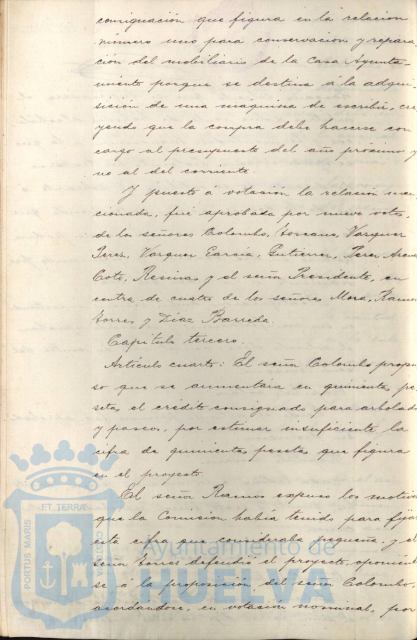 consignación que figura en la relación
número uno para conservación y repara
ción del mobiliario de la Casa Ayunta-
miento porque se destina á la adqui-
sición de una maquina de escribir, cre
yendo que la compra debe hacerse con
cargo al presupuesto del año próximo y
no al del corriente.
Y puesto á votación la relación men
cionada, fué aprobada por nueve votos
de los señores Colombo, Soriano, Vazquez
Perez, Vazquez García, Gutierrez, Perez
Coto, Resinas y el señor Presidente, en
contra de cuatro de los señores Mora, Ramos
Torres y Díaz Barreda.
Capítulo tercero.
Artículo cuarto: El señor Colombo propu
so que se aumentara en quinientas pe
setas el crédito consignado para arbolado
y paseos, por estimar insuficiente la
cifra de quinientas pesetas que figura
en el proyecto.
El señor Ramos expuso los motivos
que la Comisión había tenido para fijar
esta cifra que consideraba pequeña y el
señor Torres defendió el proyecto, oponiendo
se á la proposición del señor Colombo,
acordándose, en votación nominal, por
PORTUS MARIS ET TERRAE
Ayuntamiento de
HUELVA